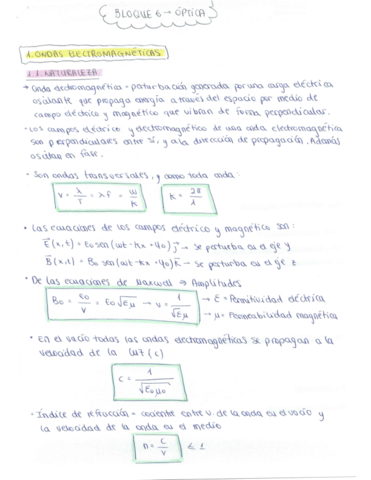 BLOQUE 6 → ÓPTICA
1. ONDAS ELECTROMAGNÉTICAS
1.1. NATURALEZA
→ Onda electromagnética = perturbación generada por una carga eléctrica
oscilante que propaga energía a través del espacio por medio de
campo eléctrico y magnético que vibran de forma perpendicular.
• Los campos eléctrico y electromagnético de una onda electromagnética
son perpendiculares entre sí, y a la dirección de propagación. Además
oscilan en fase.
- Son ondas transversales, y como toda onda:
v = λ/T = λf = ω/k   k = 2π/λ
• Las ecuaciones de los campos eléctrico y magnético son:
E(x,t) = E₀ sen(ωt - kx + φ₀) j → se perturba en el eje y
B(x,t) = B₀ sen(ωt - kx + φ₀) k → se perturba en el eje z
• De las ecuaciones de Maxwell → Amplitudes
B₀ = E₀/v = E₀√εμ → v = 1/√εμ → ε = Permitividad eléctrica
→ μ = Permeabilidad magnética
• En el vacío todas las ondas electromagnéticas se propagan a la
velocidad de la luz (c)
c = 1/√ε₀μ₀
- Índice de refracción = cociente entre v. de la onda en el vacío y
la velocidad de la onda en el medio
n = c/v ≤ 1